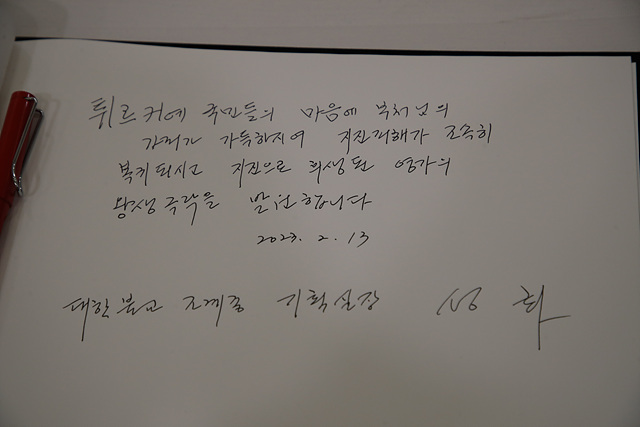 튀르커예 국민들의 마음에 부처님의
가피가 가득하시어 지진피해가 조속히
복귀되시고 지진으로 희생된 영가의
왕생극락을 발원합니다
2023. 2. 13
대한불교 조계종 기획실장 성 화